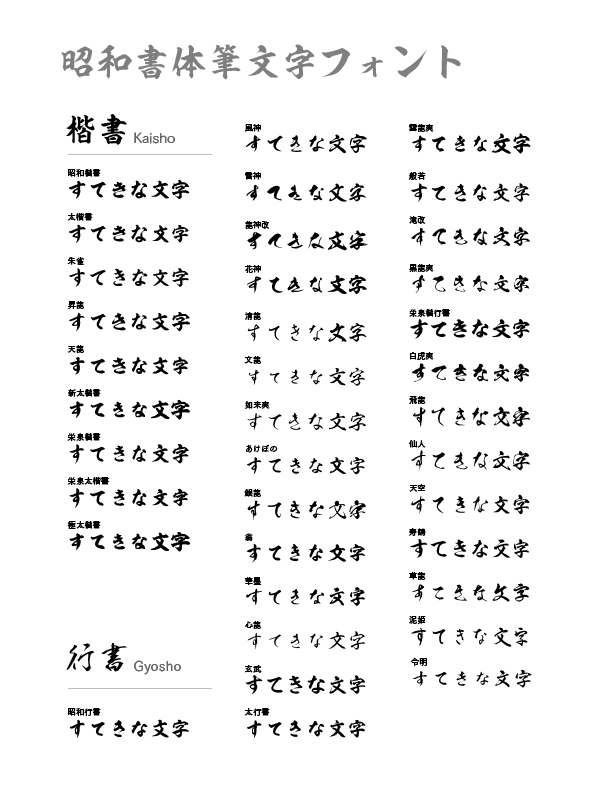 昭和書体筆文字フォント
楷書 Kaisho
昭和楷書
すてきな文字
太楷書
すてきな文字
朱雀
すてきな文字
昇龍
すてきな文字
天龍
すてきな文字
新太楷書
すてきな文字
栄泉楷書
すてきな文字
栄泉太楷書
すてきな文字
極太楷書
すてきな文字
行書 Gyosho
昭和行書
すてきな文字
風神
すてきな文字
雷神
すてきな文字
龍神改
すてきな文字
花神
すてきな文字
清龍
すてきな文字
文龍
すてきな文字
如来爽
すてきな文字
あけぼの
すてきな文字
銀龍
すてきな文字
翁
すてきな文字
華墨
すてきな文字
心龍
すてきな文字
玄武
すてきな文字
太行書
すてきな文字
雲龍爽
すてきな文字
般若
すてきな文字
滝改
すてきな文字
黒龍爽
すてきな文字
栄泉楷行書
すてきな文字
白虎爽
すてきな文字
飛龍
すてきな文字
仙人
すてきな文字
天空
すてきな文字
寿鶴
すてきな文字
草龍
すてきな文字
泥姫
すてきな文字
令明
すてきな文字